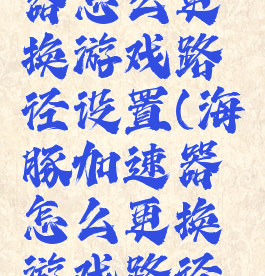 器怎么更
换游戏路
径设置(海
豚加速器
怎么更换
游戏路径